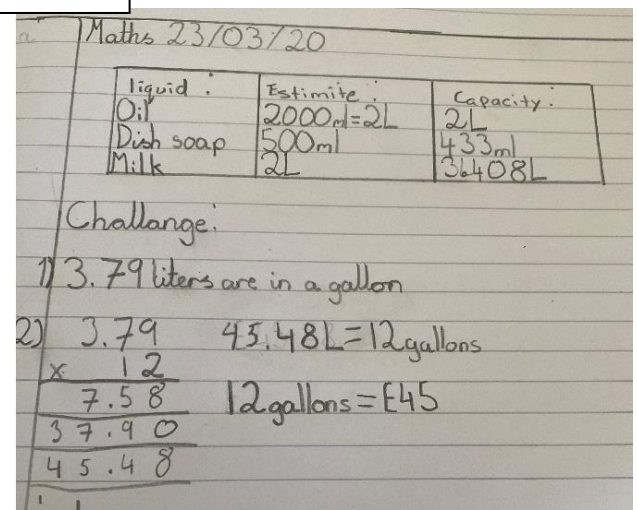 Maths 23/03/20
liquid : Estimite : Capacity :
Oil 2000ml=2L 2L
Dish soap 500ml 433ml
Milk 2L 36408L
Challange:
1) 3.79 liters are in a gallon
2) 3.79 45.48L=12gallons
x 12
7.58 12gallons=£45
37.90
45.48